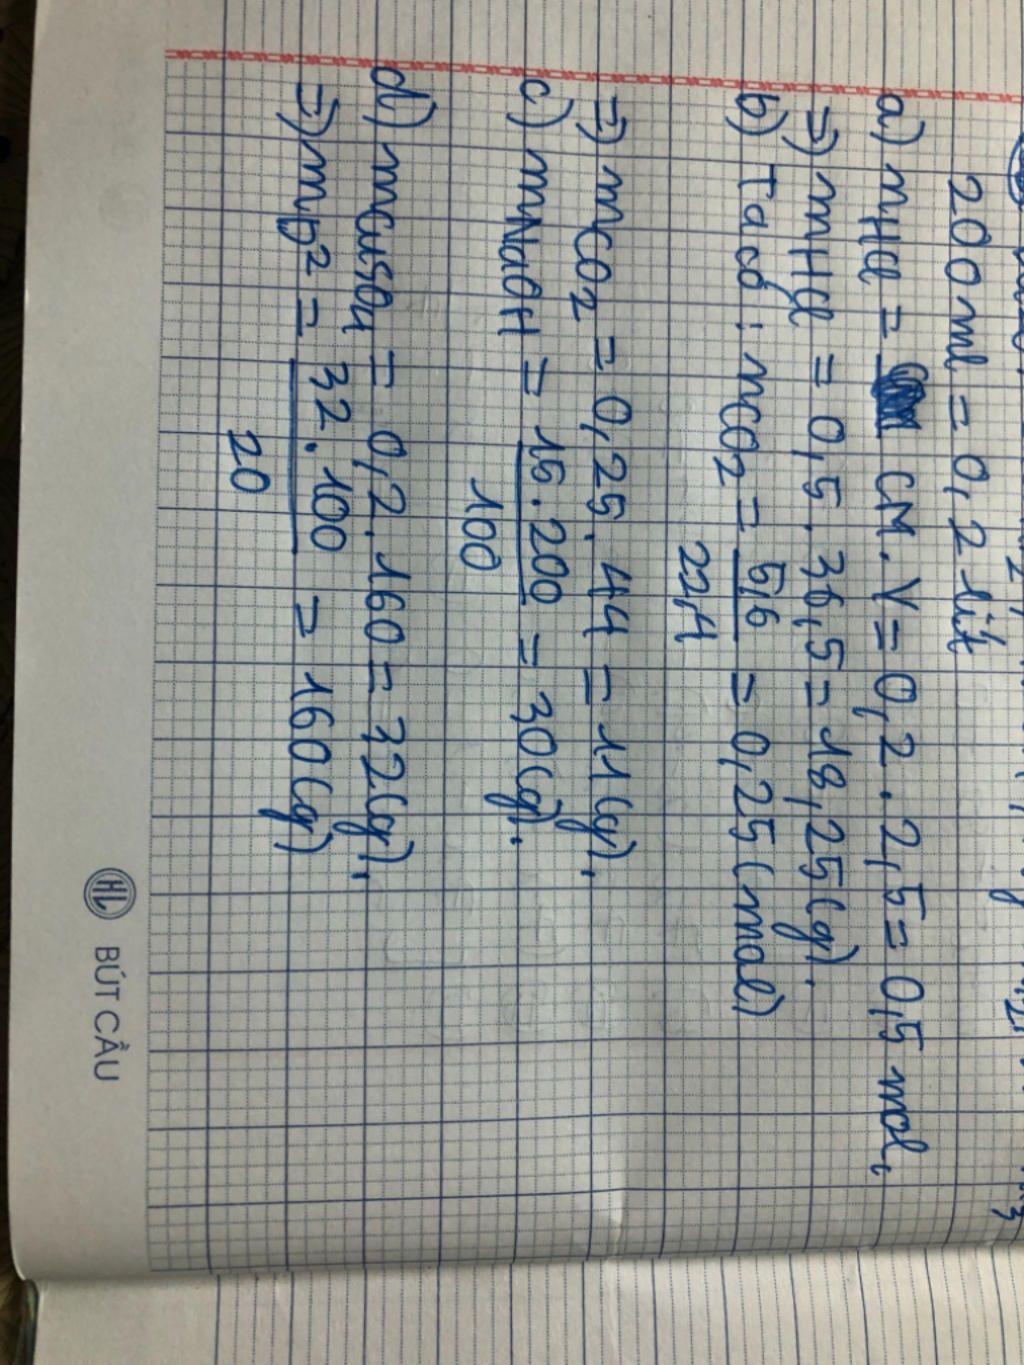 200ml = 0,2 lít
a) nHCl = CM. V = 0,2 . 2,5 = 0,5 mol,
=) mHCl = 0,5 . 36,5 = 18,25(g).
b) Ta có : nCO2 = 5,6 / 22,4 = 0,25 (mol)
=) mCO2 = 0,25. 44 = 11 (g).
c) mNaOH = 15.200 / 100 = 30(g).
d) mCuSO4 = 0,2.160 = 32(g).
=) mD2 = 32.100 / 20 = 160(g)
HL BÚT CẦU